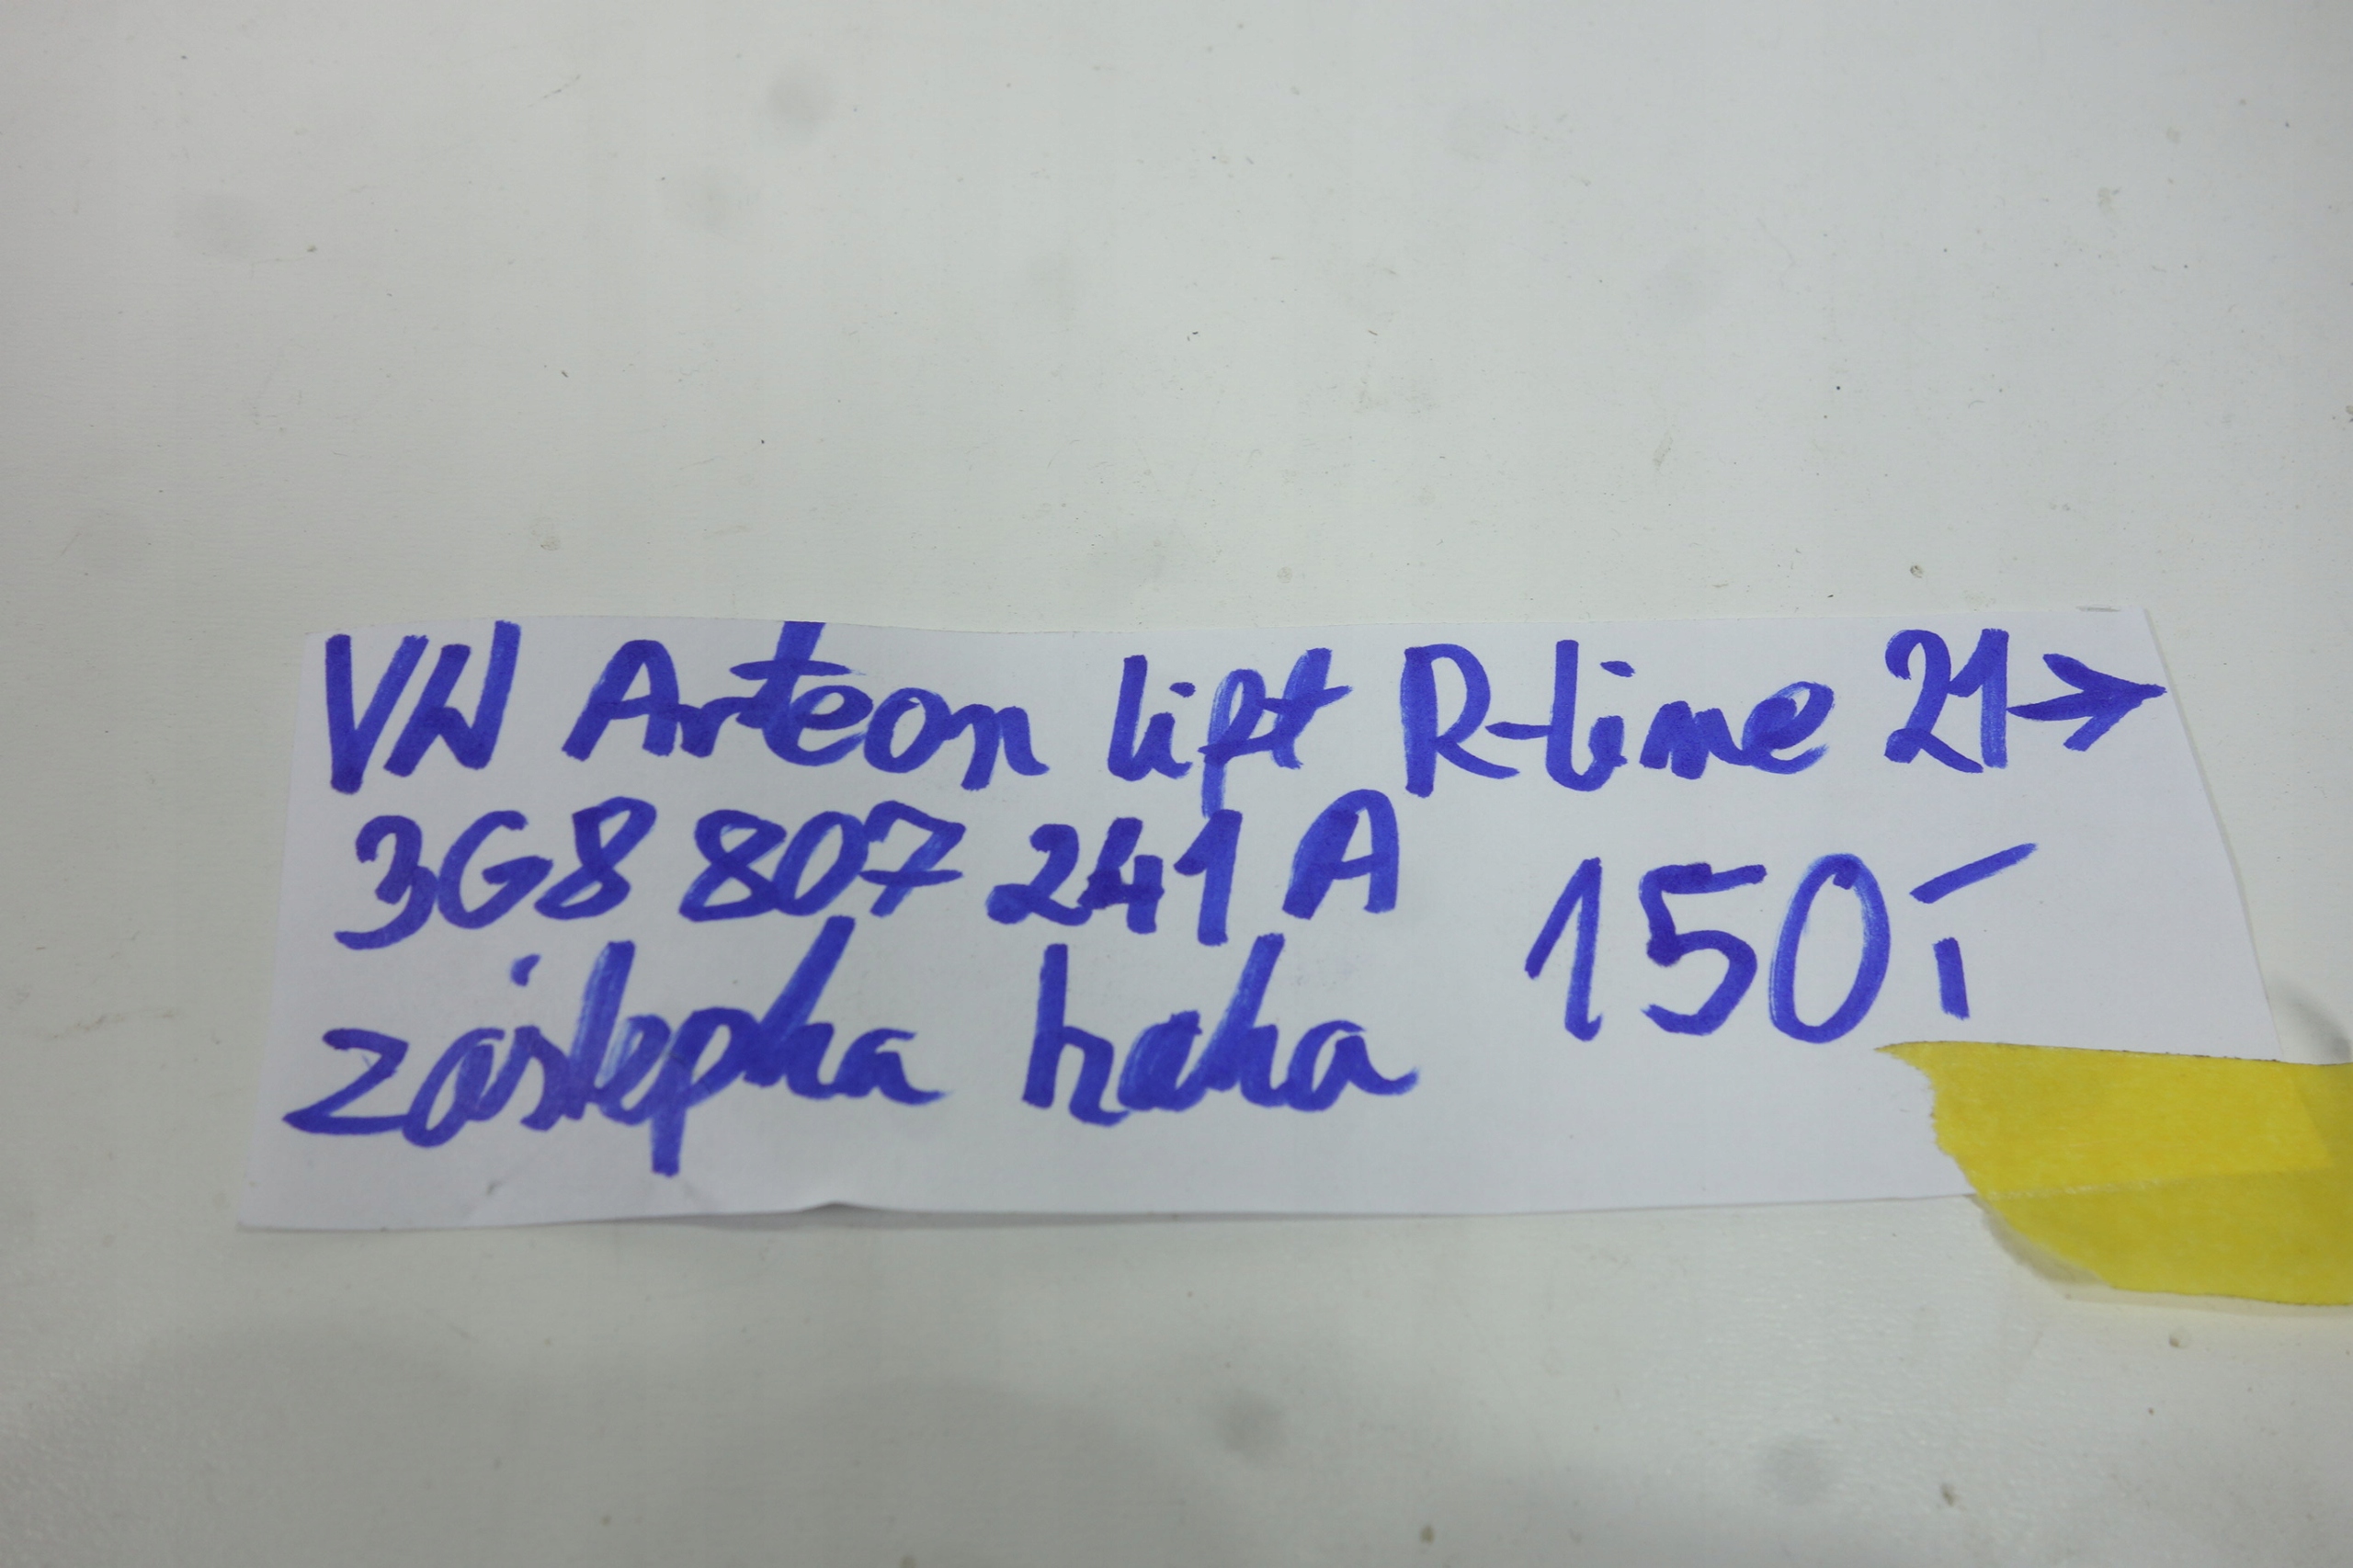 VW Arteon lift R-line 21→
3G8 807 241 A
150,-
zaślepka haka